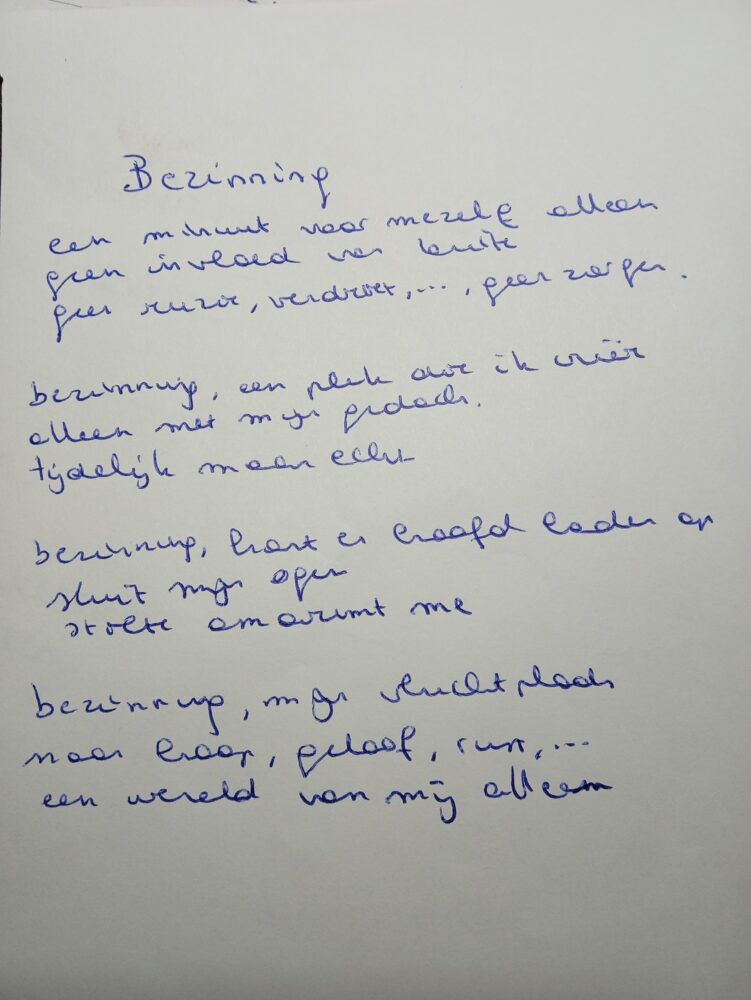 Bezinning
een minuut voor mezelf alleen
geen invloed van buite
geen ruzie, verdriet, ..., geen zorgen.
bezinning, een plek die ik
alleen met mijn gedach.
tijdelijk maar echt
bezinning, hart en hoofd laden op
sluit mijn ogen
stilte omarmt me
bezinning, mijn vluchtplaats
naar hoop, geloof, rust, ...
een wereld van mij alleen